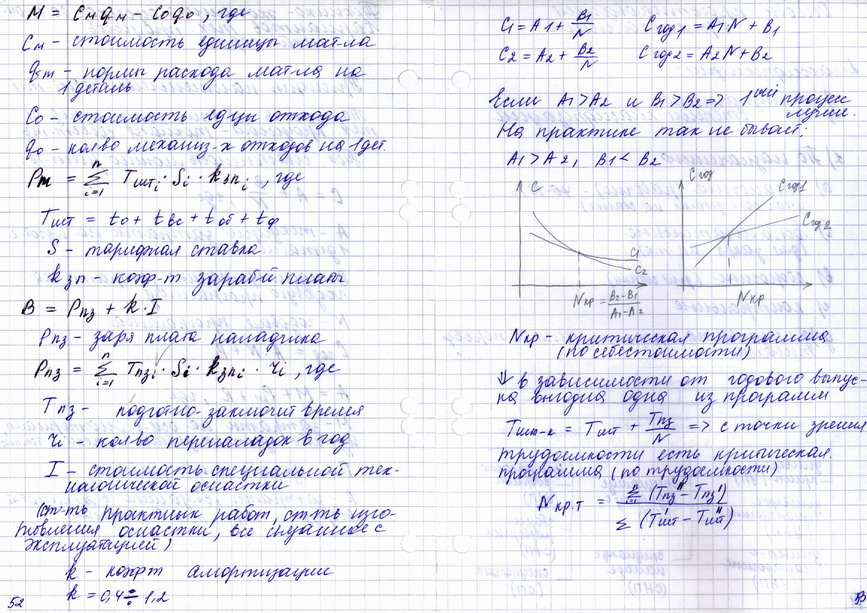 М = Cм qм − Co qo, где
Cм – стоимость единицы матла
qm – нормы расхода матла на
1 деталь
Co – стоимость едцы отхода
qo – колво механиз-х отходов на 1 дет.
Pm = Σ Tштi · Si · kзпi, где
n
i=1
Tшт = to + tвс + tоб + tф
S – тарифная ставка
kзп – коэф-т зарабй платы
B = Pпз + k·I
Pпз – зарп плата наладчика
Pпз = Σ Tпзi · Si · kзпi · ri, где
n
i=1
Tпз – подготно-заключит время
ri – колво переналадок в год
I – стоимость специальной тех-
нологической оснастки
(ст-ть практик работ, ст-ть изго-
товления оснастки, все связанное с
эксплуатацией)
k – коэфт амортизации
k = 0,4 ÷ 1,2
52
C1 = A1 + B1/N Cгод1 = A1N + B1
C2 = A2 + B2/N Cгод2 = A2N + B2
Если A1 > A2 и B1 > B2 => 1ый процес
На практике так не бывает:
A1 > A2, B1 < B2
C
C1
C2
Nкр = B2−B1/A1−A2
Cгод
Cгод1
Cгод2
Nкр
Nкр – критическая программа
(по себестоимости)
↓ в зависимости от годового выпус-
ка выгодна одна из программ
Tшт-к = Tшт + Tпз/N => с точки зрения
трудоемкости есть критическая
программа (по трудоемкости)
Nкр.т = Σ (Tпз'' − Tпз') / Σ (Tшт' − Tшт'')
n
i=1